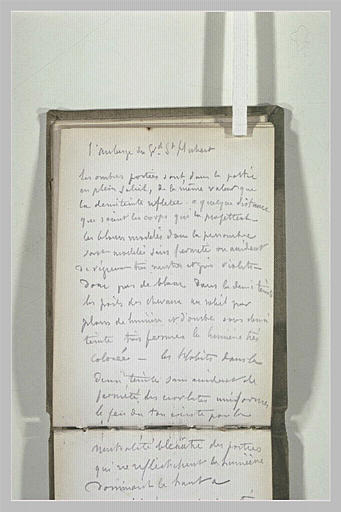 l'auberge du Gd St Hubert
les ombres portées sont dans la partie
en plein soleil, de la même valeur que
la demi teinte reflétée - à quelque distance
que soient les corps qui la projettent.
les blancs modelés dans la pénombre
sont modelés sans fermeté ou accident
ton neutre et gris violet
Donc pas de blanc dans la demi teinte
les poils des chevaux au soleil par
plans de lumière et d'ombre sous demi
teinte très fermes la lumière très
colorée - les habits dans la
demi teinte sans accident de
fermeté, des écarlates uniformes,
le jeu du ton existe par la
neutralité bleuâtre des parties
qui ne réfléchissent la lumière
dominant le haut a